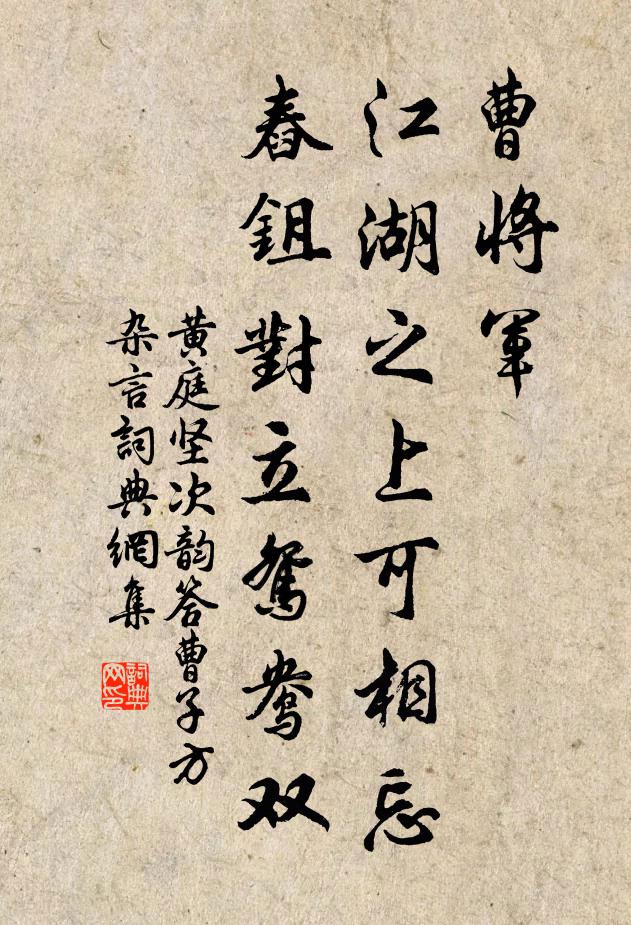 曹將軍
江湖之上可相忘
舂鉏對立鴛鴦双
黄庭坚次韵答曹子方
杂言詞典網集
詞典网印